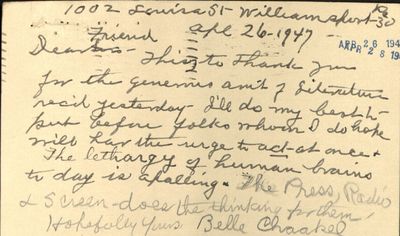 1002 Louisa St- Williamsport Pa 30
Apl. 26-1947-
APR 26 194
APR 28 194
Friend
Dear - This to thank you
for the generous am't of Literature
rec'd yesterday - I'll do my best to
put before folks whom I do hope
will hav the urge to act at once &
The lethargy of human brains
to day is apalling. The Press, Radio
& Screen-does the thinking for them,
Hopefully yours Belle